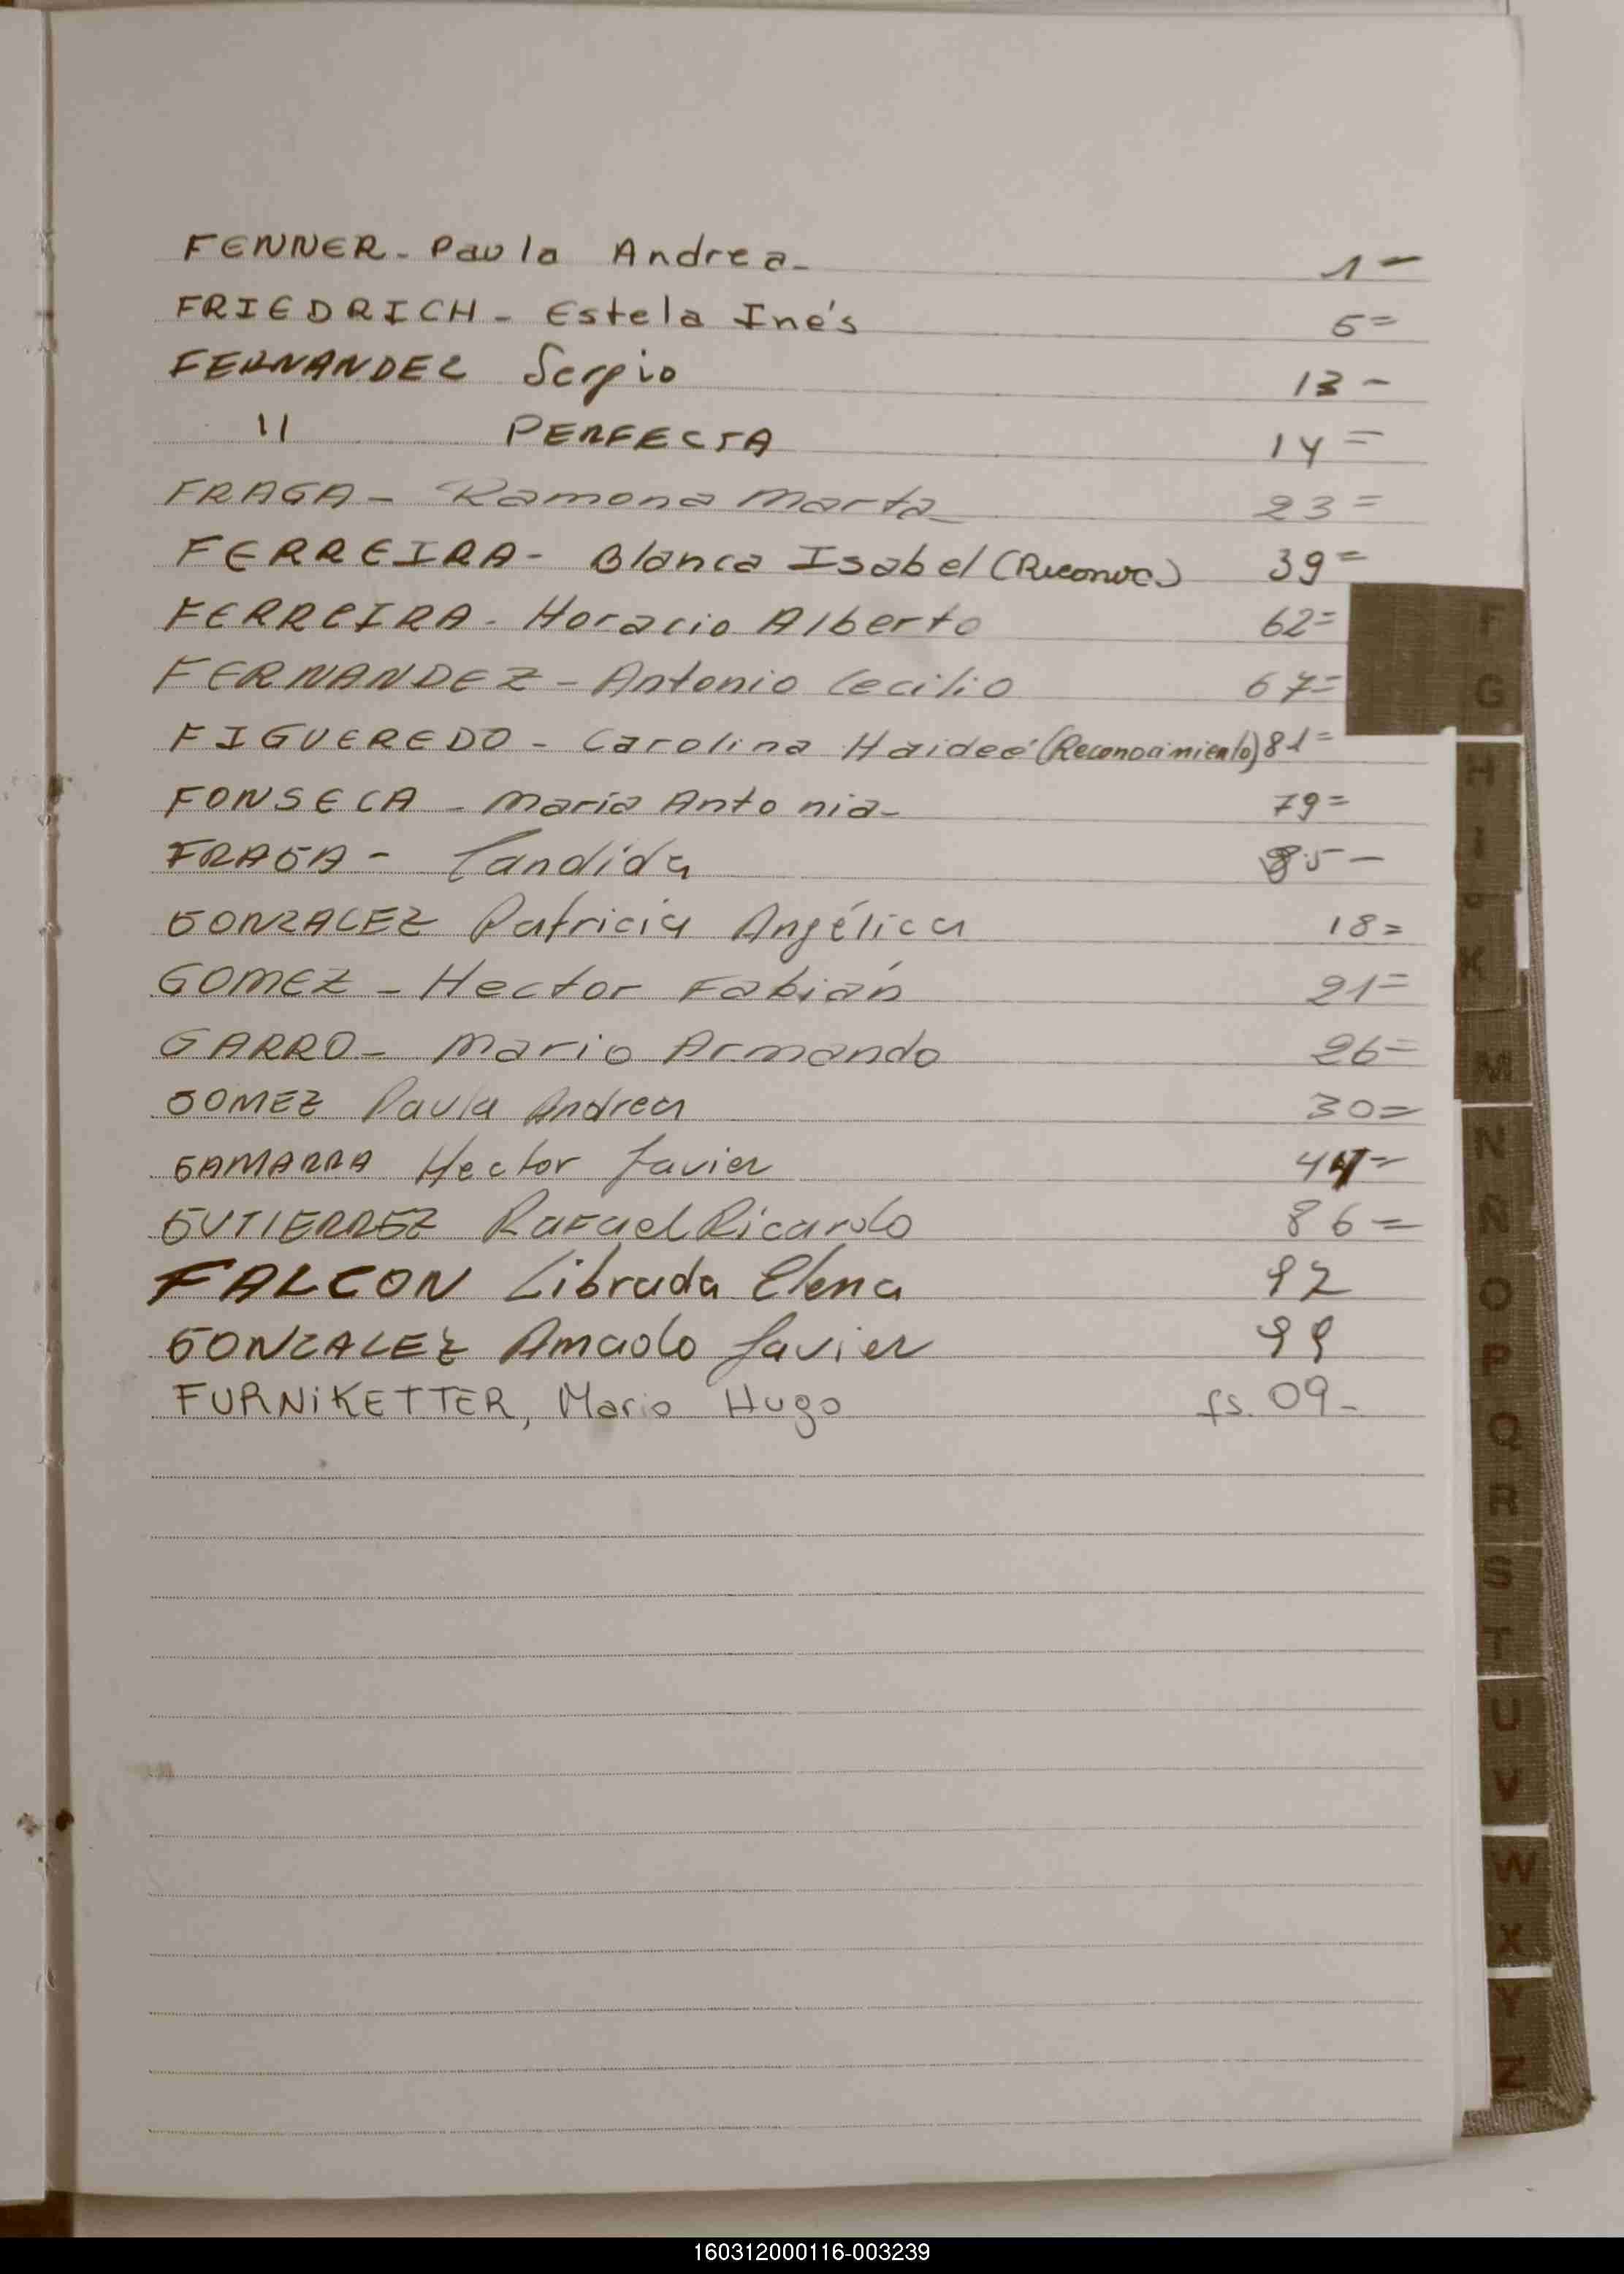 FENNER - Paula Andrea - 1 -
FRIEDRICH - Estela Inés 5 =
FERNANDEZ Sergio 13 -
" PERFECTA 14 =
FRAGA - Ramona Marta - 23 =
FERREIRA - Blanca Isabel (Reconoc.) 39 =
FERREIRA - Horacio Alberto 62 =
FERNANDEZ - Antonio Cecilio 67 =
FIGUEREDO - Carolina Haideé (Reconocimiento) 81 =
FONSECA - Maria Antonia - 79 =
FRAGA - Candida 85 -
GONZALEZ Patricia Angélica 18 =
GOMEZ - Hector Fabián 21 =
GARRO - Mario Armando 26 =
GOMEZ Paula Andrea 30 =
GAMARRA Hector Javier 44 =
GUTIERREZ Rafael Ricardo 86 =
FALCON Librada Elena 92
GONZALEZ Amado Javier 99
FURNIKETTER, Mario Hugo fs. 09 -
F
G
H
I
J
K
M
N
Ñ
O
P
Q
R
S
T
U
V
W
X
Y
Z
160312000116-003239